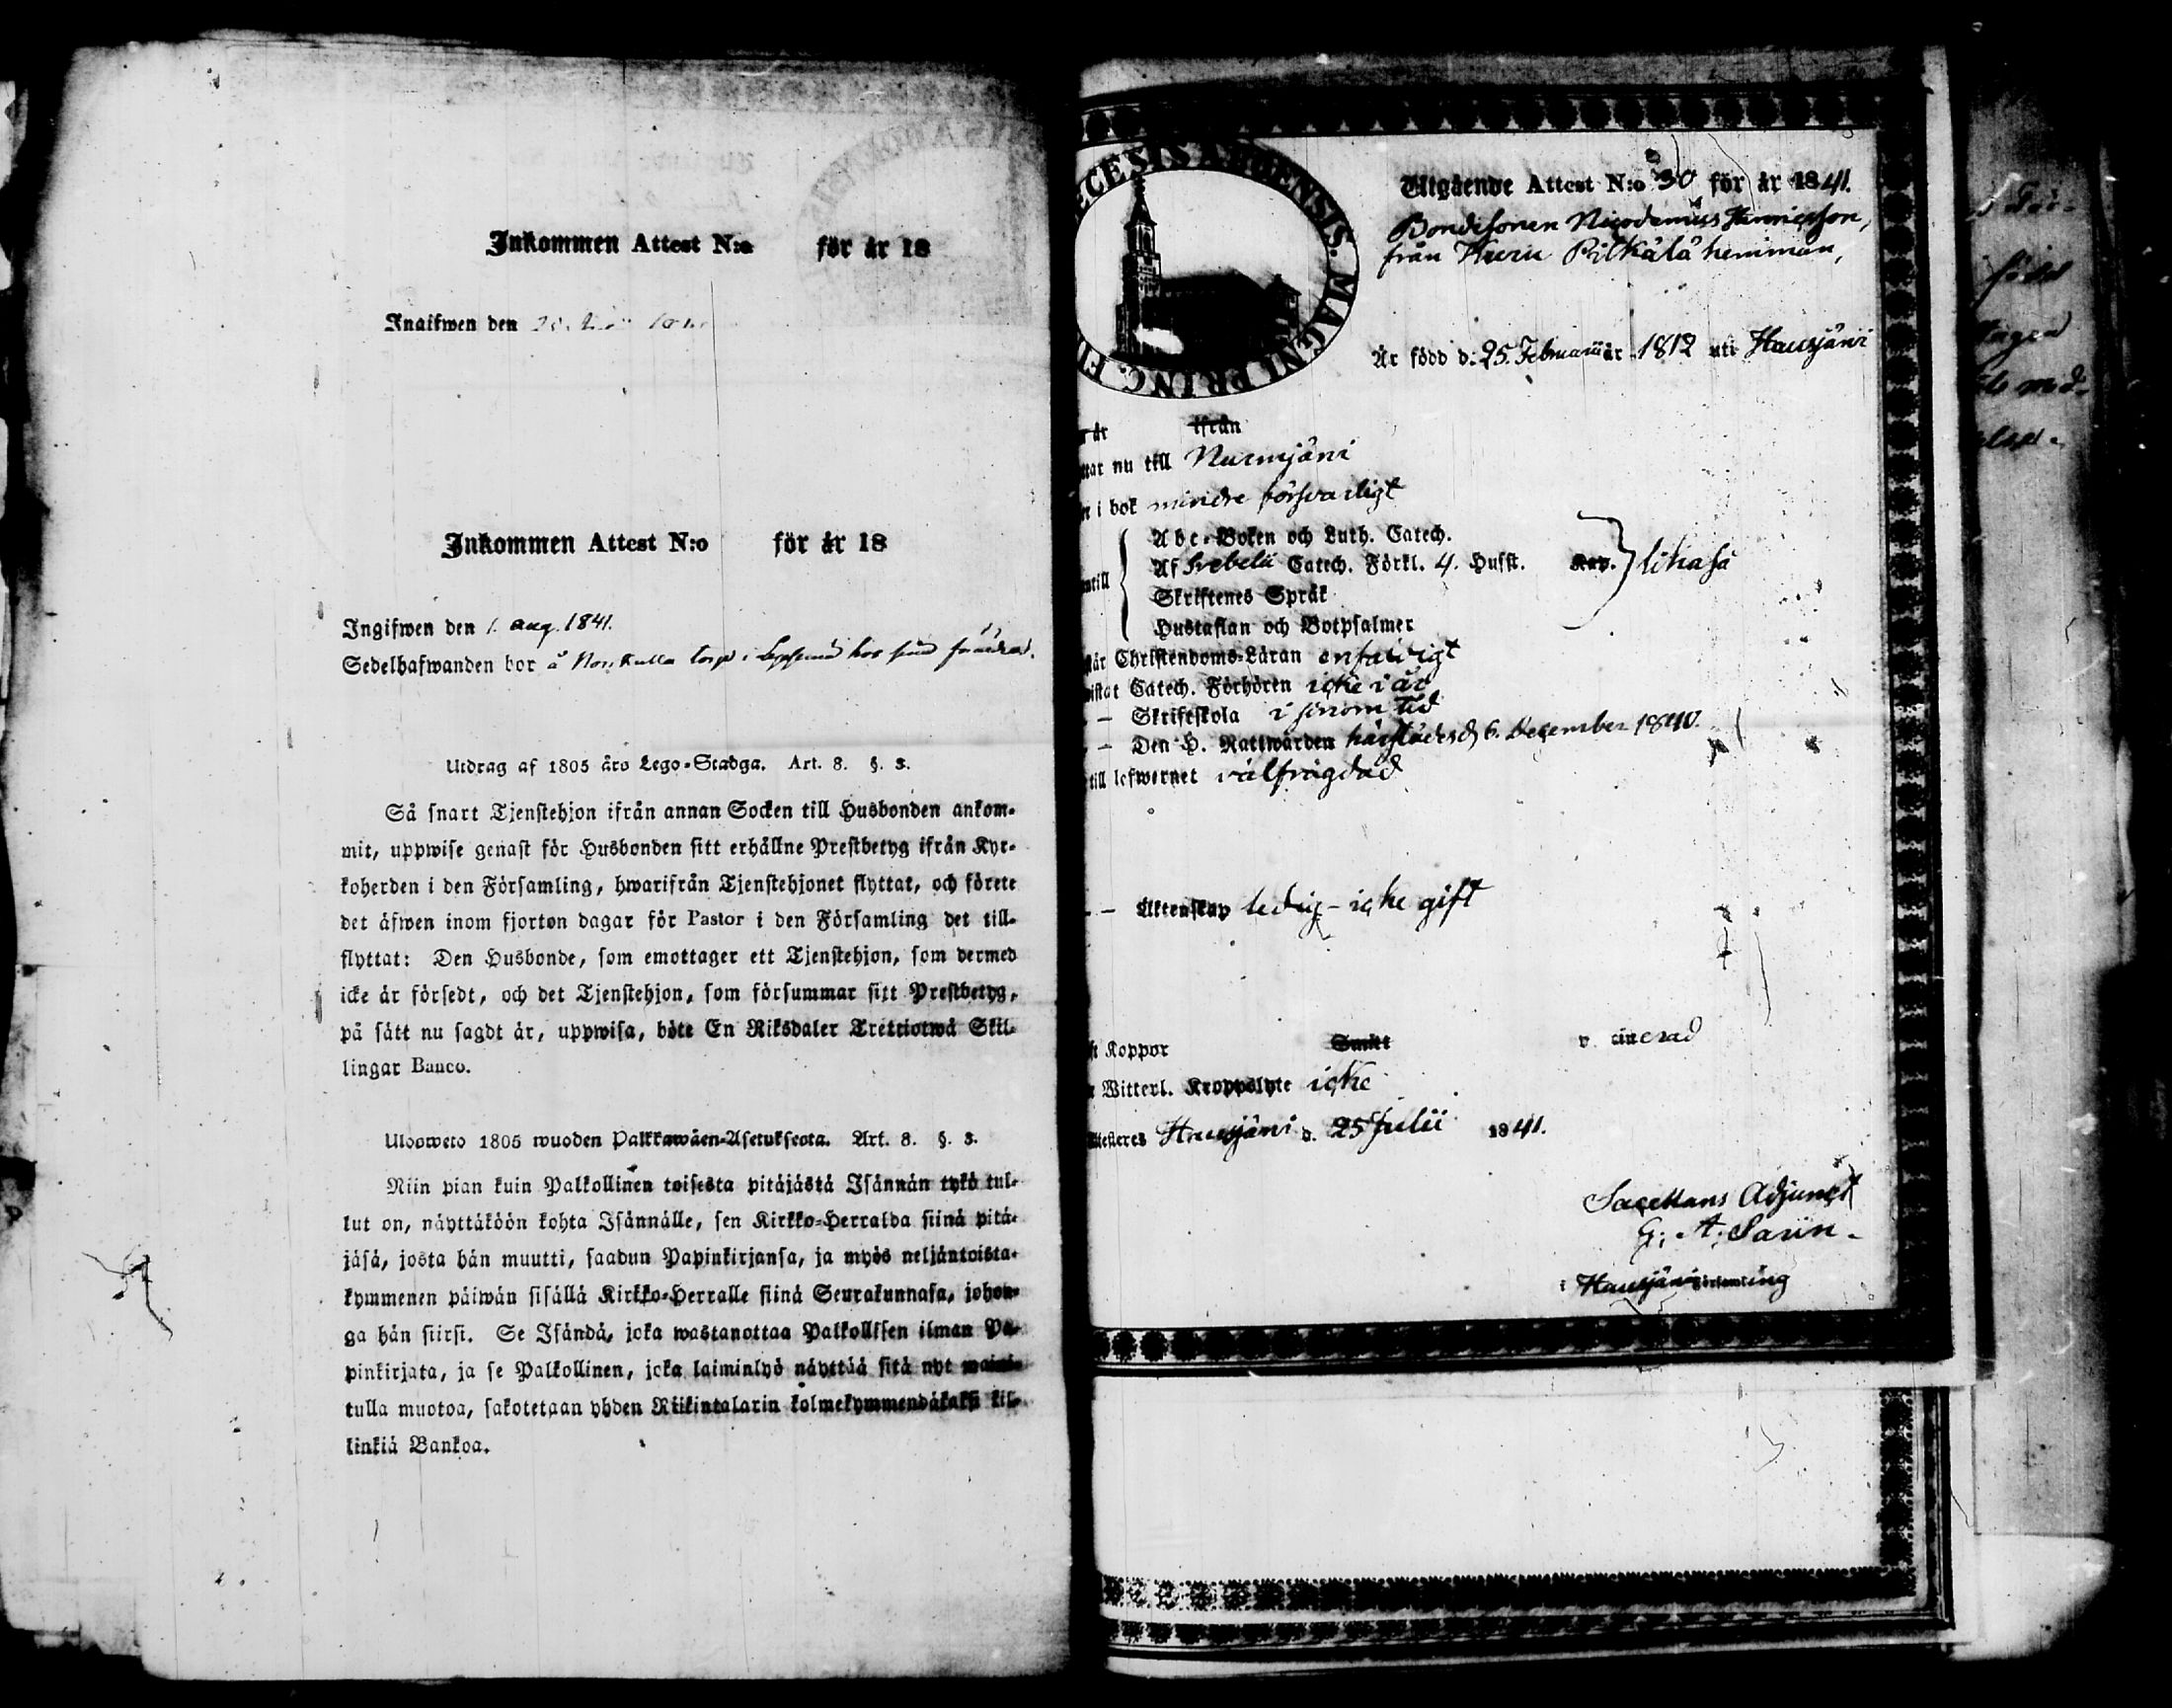 Inkommen Attest N:o för år 18
Ingifwen den
Inkommen Attest N:o för år 18
Ingifwen den 1. aug. 1841.
Sedelhafwanden bor å torp i hos sina
Utdrag af 1805 års Lego-Stadga. Art. 8. §. 3.
Så snart Tjenstehjon ifrån annan Socken till Husbonden ankom-
mit, uppwise genast för Husbonden sitt erhållne Prestbetyg ifrån Kyr-
koherden i den Församling, hwarifrån Tjenstehjonet flyttat, och förete
det äfwen inom fjorton dagar för Pastor i den Församling det till-
flyttat: Den Husbonde, som emottager ett Tjenstehjon, som dermed
icke är försedt, och det Tjenstehjon, som försummar sitt Prestbetyg,
på sätt nu sagdt är, uppwisa, böte En Riksdaler Trettiotwå Skil-
lingar Banco.
Ulosweto 1805 wuoden Palkkawäen-Asetuksesta. Art. 8. §. 3.
Niin pian kuin Palkollinen toisesta pitäjästä Isännän tykö tul-
lut on, näyttäköön kohta Isännälle, sen Kirkko-Herralda siinä pitä-
jäsä, josta hän muutti, saadun Papinkirjansa, ja myös neljäntoista-
kymmenen päiwän sisällä Kirkko-Herralle siinä Seurakunnasa, johon-
ga hän siirsi. Se Isändä, joka wastanottaa Palkollisen ilman Pa-
pinkirjata, ja se Palkollinen, joka laiminlyö näyttää sitä nyt maini-
tulla muotoa, sakotetaan yhden Riikintalarin kolmekymmendäkaksi kil-
linkiä Bankoa.
ECESIS ABOENSIS. MAGNI PRINC. FI
Utgående Attest N:o 30 för år 1841.
Bondesonen Nicodemus Henricsson,
från Pilkälä hemman,
Är född d. 25. Februarii år 1812 uti Hausjärvi
år ifrån
tar nu till Nurmijärvi
i bok mindre försvarligt
Abc-Boken och Luth. Catech.
Af Svebelii Catech. Förkl. 4. Husst. Kap. } likaså
ntill { Skriftenes Språk
Hustaflan och Botpsalmer
står Christendoms-Läran enfaldigt
istat Catech. Förhören icke i år
– Skriftskola i sinom tid
– Den H. Nattwarden härstädes d 6. December 1840.
till lefwernet välfrägdad
– – Äktenskap ledig – icke gift
ft Koppor Smitt v cinerad
Witterl. Kroppslyte icke
ttesteres Hausjärvi d. 25 Julii 1841.
Sacellans Adjunct
G. A. Sarin.
i Hausjärvi Församling